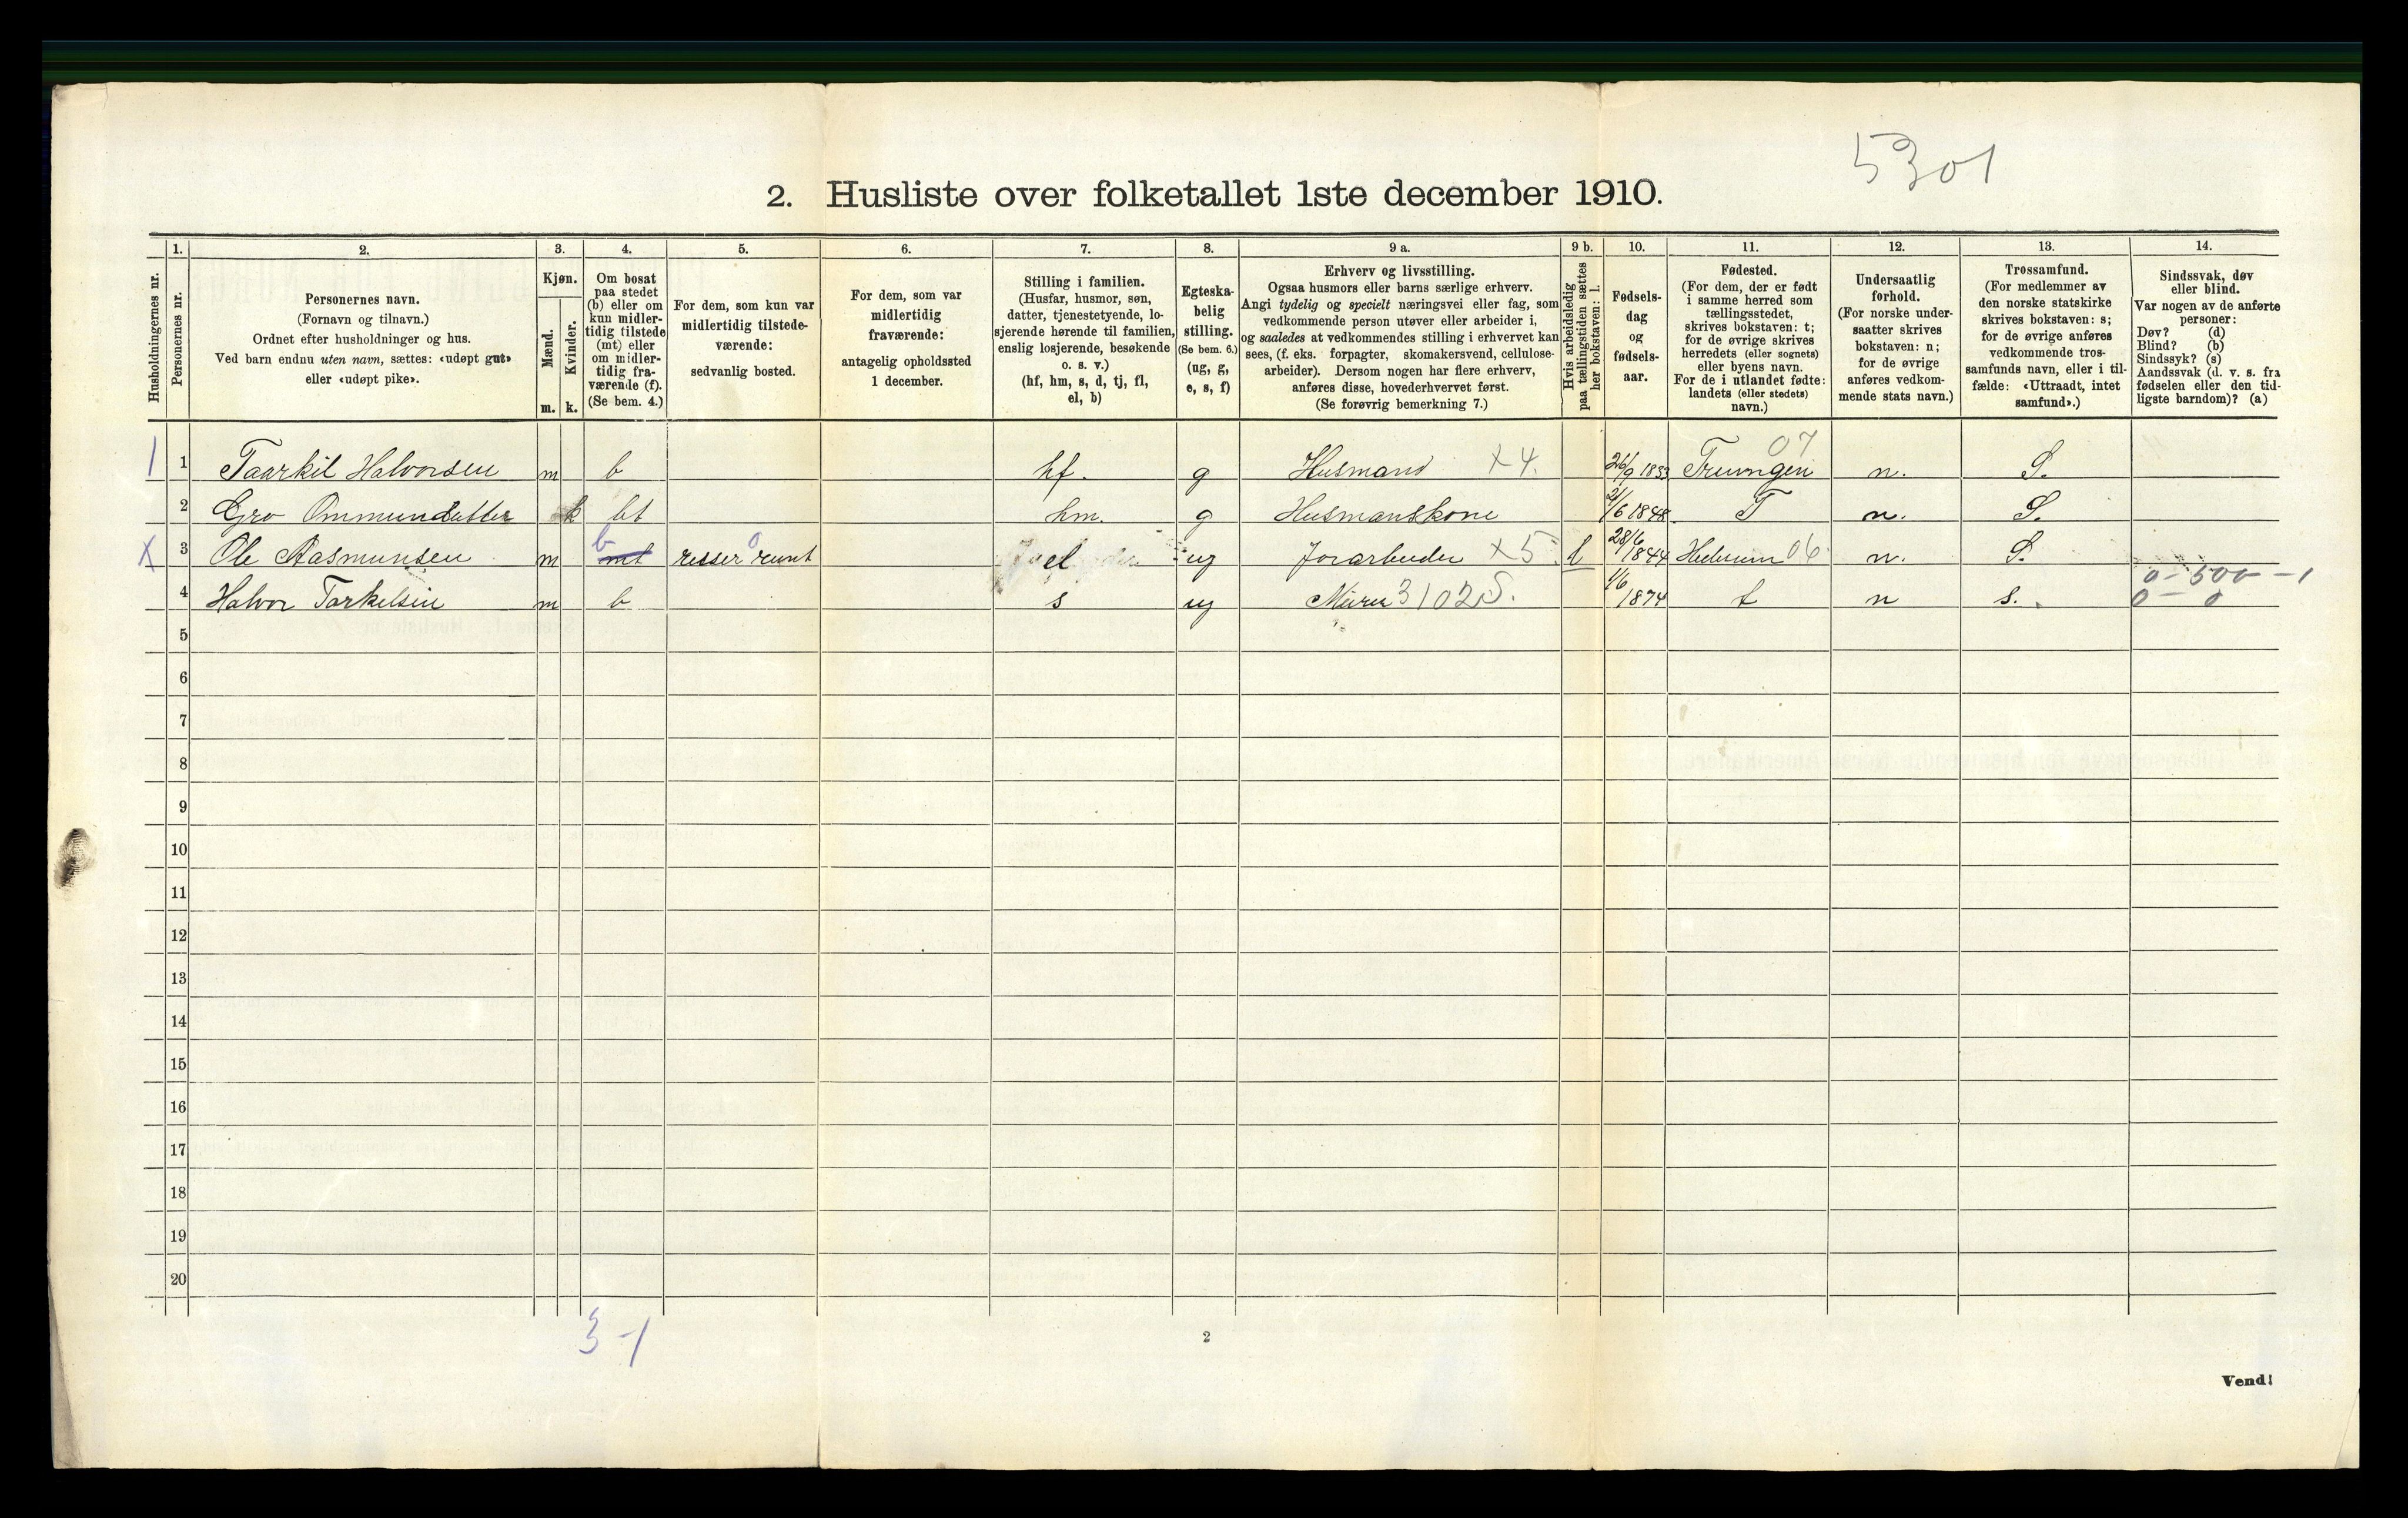 5301
2. Husliste over folketallet 1ste december 1910.
Husholdningernes nr.
1. Personernes nr.
2. Personernes navn. (Fornavn og tilnavn.) Ordnet efter husholdninger og hus. Ved barn endnu uten navn, sættes: «udøpt gut» eller «udøpt pike».
3. Kjøn. Mænd. m. Kvinder. k.
4. Om bosat paa stedet (b) eller om kun midlertidig tilstede (mt) eller om midlertidig fraværende (f). (Se bem. 4.)
5. For dem, som kun var midlertidig tilstedeværende: sedvanlig bosted.
6. For dem, som var midlertidig fraværende: antagelig opholdssted 1 december.
7. Stilling i familien. (Husfar, husmor, søn, datter, tjenestetyende, losjerende hørende til familien, enslig losjerende, besøkende o. s. v.) (hf, hm, s, d, tj, fl, el, b)
8. Egteskabelig stilling. (Se bem. 6.) (ug, g, e, s, f)
9 a. Erhverv og livsstilling. Ogsaa husmors eller barns særlige erhverv. Angi tydelig og specielt næringsvei eller fag, som vedkommende person utøver eller arbeider i, og saaledes at vedkommendes stilling i erhvervet kan sees, (f. eks. forpagter, skomakersvend, cellulosearbeider). Dersom nogen har flere erhverv, anføres disse, hovederhvervet først. (Se forøvrig bemerkning 7.)
9 b. Hvis arbeidsledig paa tællingstiden sættes her bokstaven: l.
10. Fødselsdag og fødselsaar.
11. Fødested. (For dem, der er født i samme herred som tællingsstedet, skrives bokstaven: t; for de øvrige skrives herredets (eller sognets) eller byens navn. For de i utlandet fødte: landets (eller stedets) navn.)
12. Undersaatlig forhold. (For norske undersaatter skrives bokstaven: n; for de øvrige anføres vedkommende stats navn.)
13. Trossamfund. (For medlemmer av den norske statskirke skrives bokstaven: s; for de øvrige anføres vedkommende trossamfunds navn, eller i tilfælde: «Uttraadt, intet samfund».)
14. Sindssvak, døv eller blind. Var nogen av de anførte personer: Døv? (d) Blind? (b) Sindssyk? (s) Aandssvak (d. v. s. fra fødselen eller den tidligste barndom)? (a)
1 1 Taarkil Halvorsen m b hf. g Husmand X 4. 26/9 1853 Truungen 07 n. S.
2 Gro Ommundsatter k bt hm. g Husmanskone 21/6 1848. T n. S.
X 3 Ole Aasmunsen m mt b reiser runt 0 el ug Jorarbeider X 5 l 28/6 1844 Hedrum 06 n. S.
0 - 500 - 1
4 Halvor Tarkelsen m b s ug Murer 3102 S. 1/6 1874 t n s. 0 - 0
5
6
7
8
9
10
11
12
13
14
15
16
17
18
19
20
3 - 1
2
Vend!